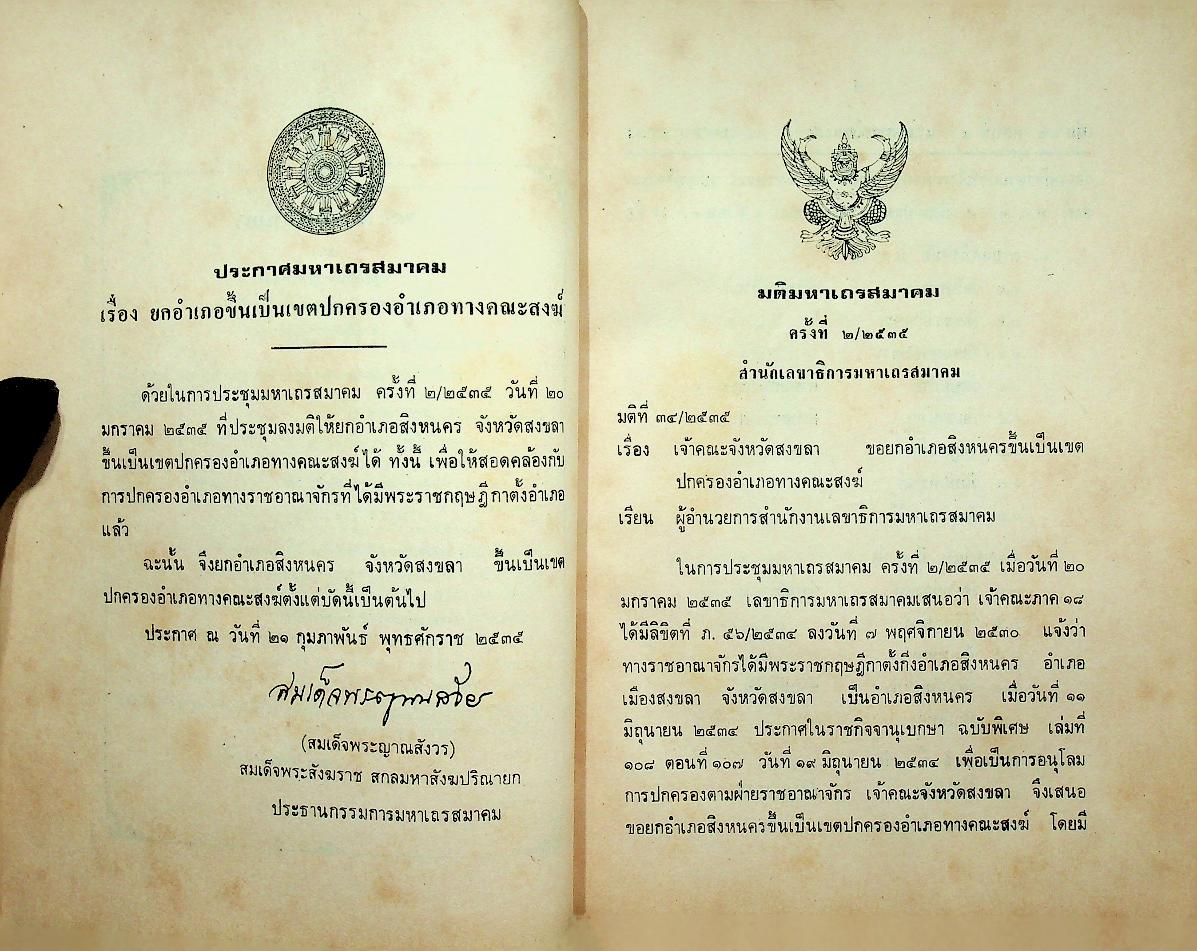 ประกาศมหาเถรสมาคม
เรื่อง ยกอำเภอขึ้นเป็นเขตปกครองอำเภอทางคณะสงฆ์
ด้วยในการประชุมมหาเถรสมาคม ครั้งที่ ๒/๒๕๓๕ วันที่ ๒๐
มกราคม ๒๕๓๕ ที่ประชุมลงมติให้ยกอำเภอสิงหนคร จังหวัดสงขลา
ขึ้นเป็นเขตปกครองอำเภอทางคณะสงฆ์ได้ ทั้งนี้ เพื่อให้สอดคล้องกับ
การปกครองอำเภอทางราชอาณาจักรที่ได้มีพระราชกฤษฎีกาตั้งอำเภอ
แล้ว
ฉะนั้น จึงยกอำเภอสิงหนคร จังหวัดสงขลา ขึ้นเป็นเขต
ปกครองอำเภอทางคณะสงฆ์ตั้งแต่บัดนี้เป็นต้นไป
ประกาศ ณ วันที่ ๒๑ กุมภาพันธ์ พุทธศักราช ๒๕๓๕
(สมเด็จพระญาณสังวร)
สมเด็จพระสังฆราช สกลมหาสังฆปริณายก
ประธานกรรมการมหาเถรสมาคม
มติมหาเถรสมาคม
ครั้งที่ ๒/๒๕๓๕
สำนักเลขาธิการมหาเถรสมาคม
มติที่ ๓๔/๒๕๓๕
เรื่อง เจ้าคณะจังหวัดสงขลา ขอยกอำเภอสิงหนครขึ้นเป็นเขต
ปกครองอำเภอทางคณะสงฆ์
เรียน ผู้อำนวยการสำนักงานเลขาธิการมหาเถรสมาคม
ในการประชุมมหาเถรสมาคม ครั้งที่ ๒/๒๕๓๕ เมื่อวันที่ ๒๐
มกราคม ๒๕๓๕ เลขาธิการมหาเถรสมาคมเสนอว่า เจ้าคณะภาค ๑๘
ได้มีลิขิตที่ ภ. ๕๖/๒๕๓๔ ลงวันที่ ๗ พฤศจิกายน ๒๕๓๐ แจ้งว่า
ทางราชอาณาจักรได้มีพระราชกฤษฎีกาตั้งกิ่งอำเภอสิงหนคร อำเภอ
เมืองสงขลา จังหวัดสงขลา เป็นอำเภอสิงหนคร เมื่อวันที่ ๑๑
มิถุนายน ๒๕๓๔ ประกาศในราชกิจจานุเบกษา ฉบับพิเศษ เล่มที่
๑๐๘ ตอนที่ ๑๐๗ วันที่ ๑๙ มิถุนายน ๒๕๓๔ เพื่อเป็นการอนุโลม
การปกครองตามฝ่ายราชอาณาจักร เจ้าคณะจังหวัดสงขลา จึงเสนอ
ขอยกอำเภอสิงหนครขึ้นเป็นเขตปกครองอำเภอทางคณะสงฆ์ โดยมี